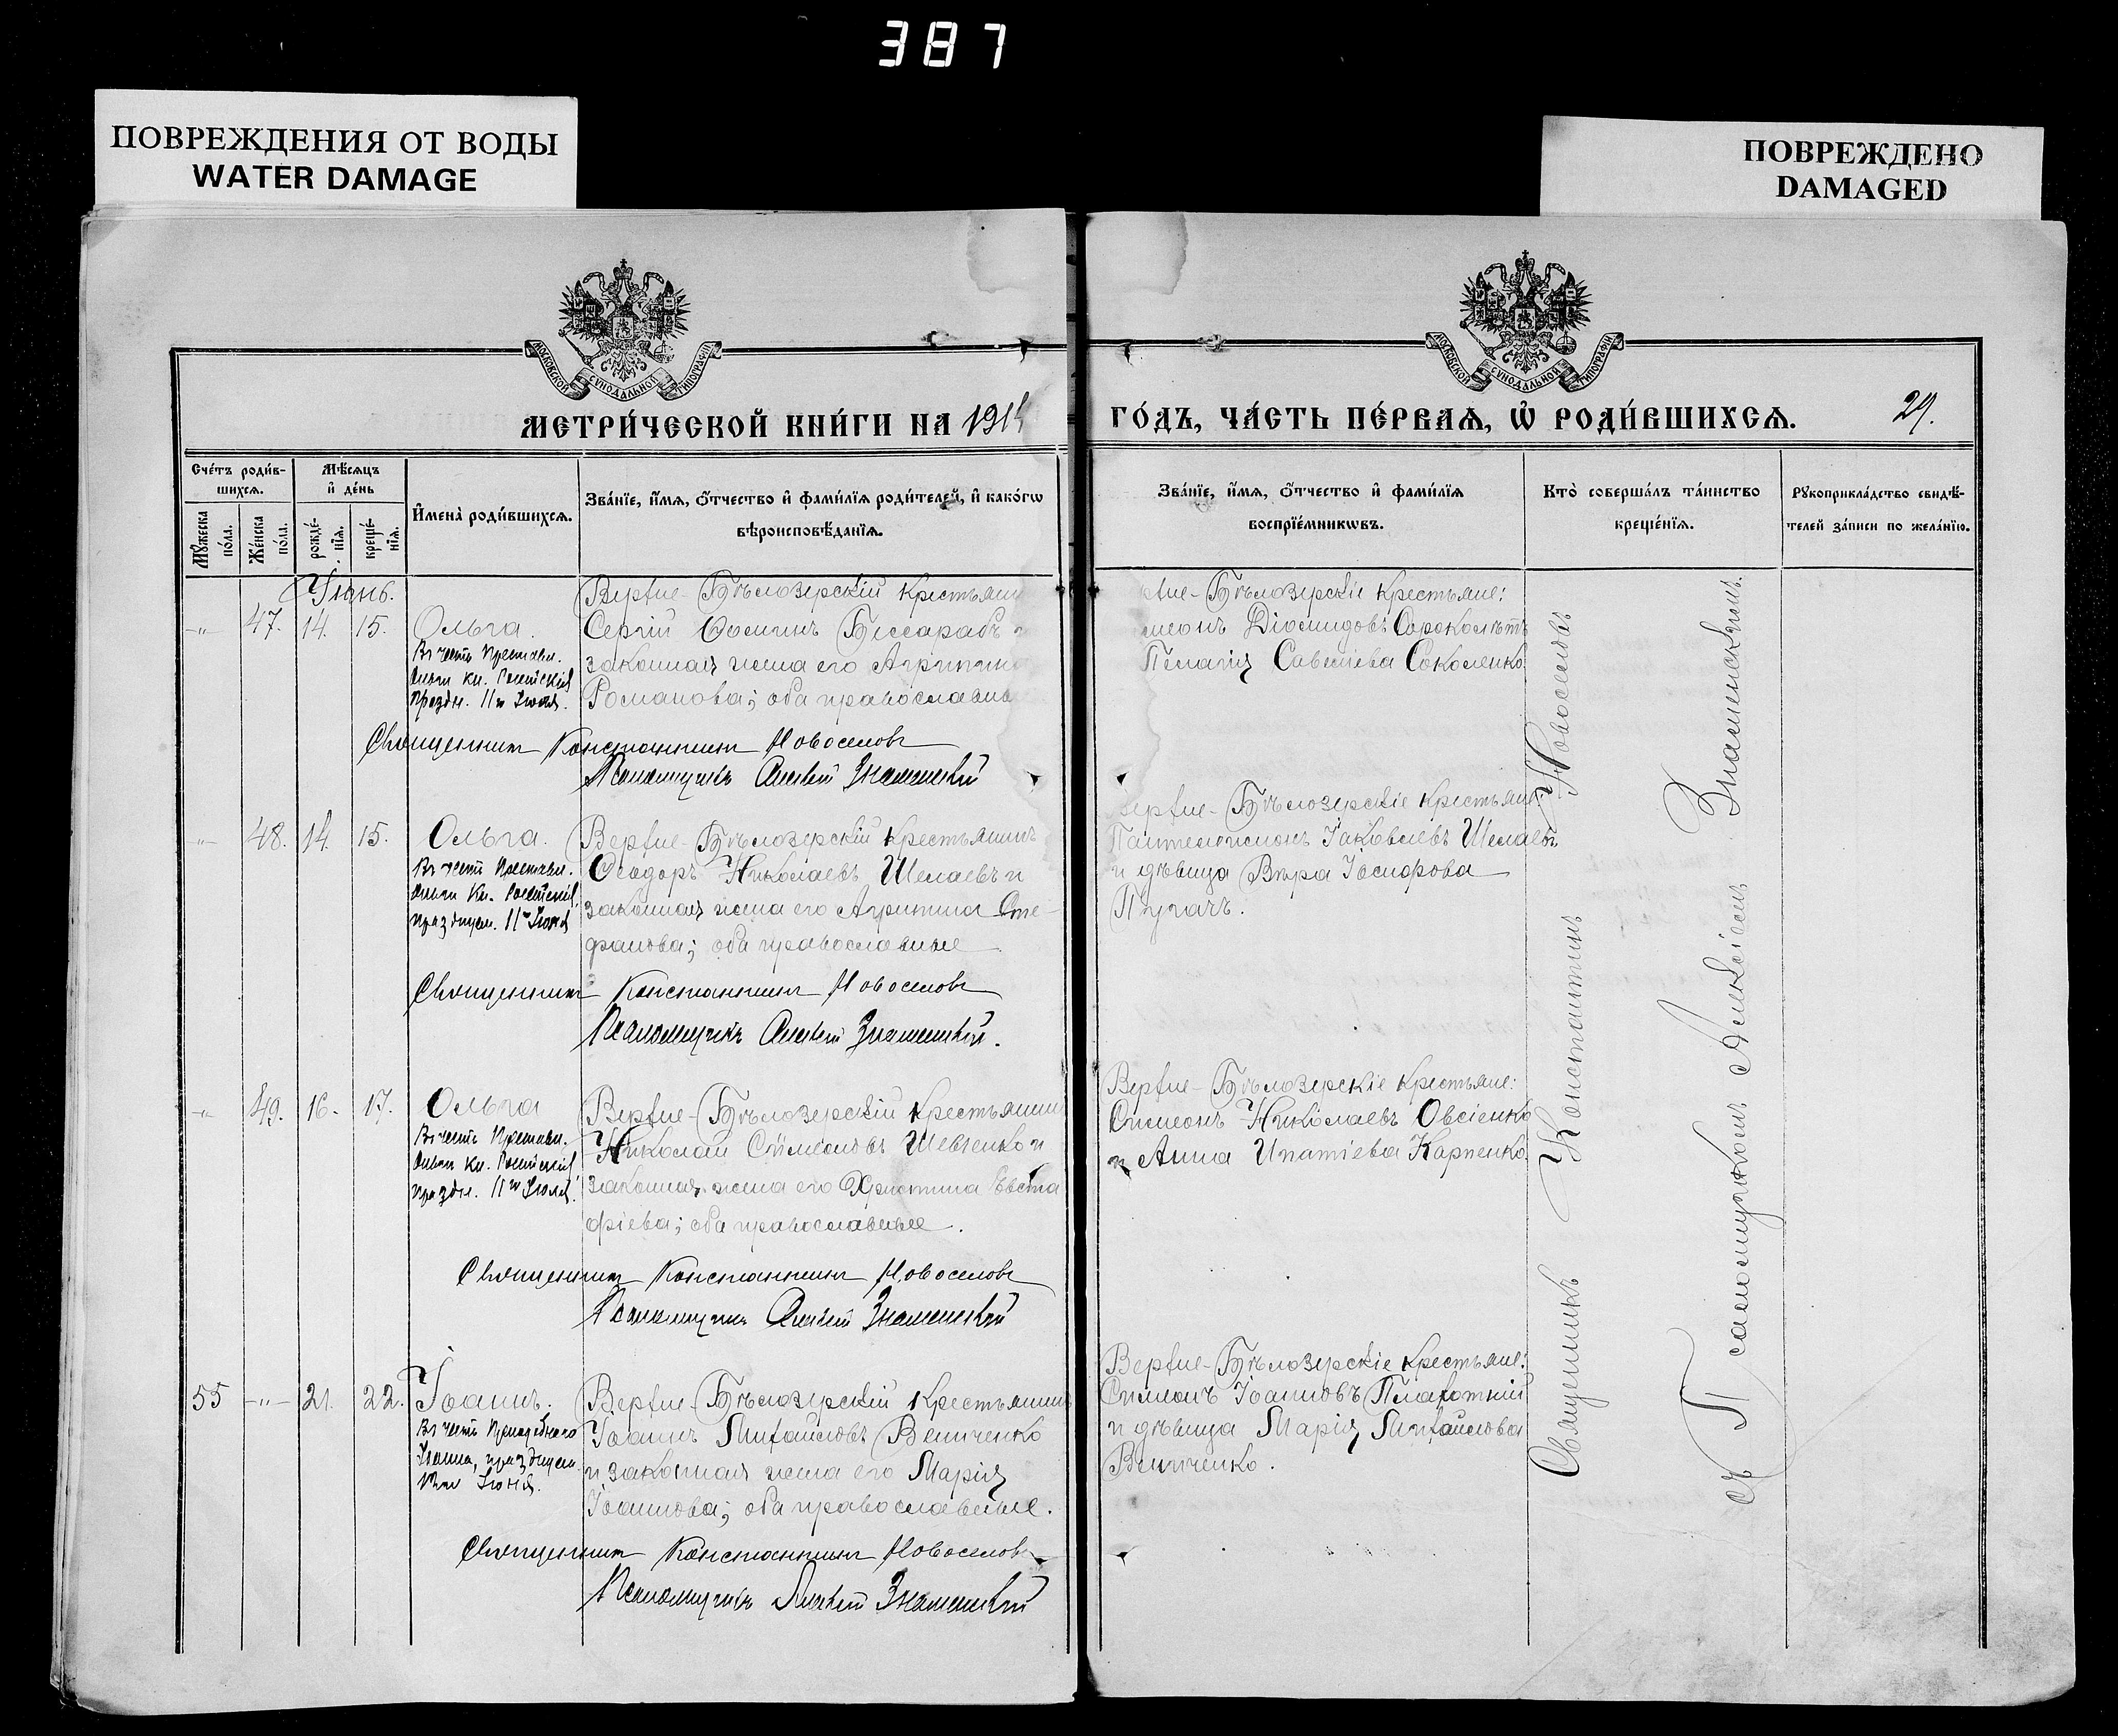 387
ПОВРЕЖДЕНИЯ ОТ ВОДЫ
WATER DAMAGE
ПОВРЕЖДЕНО
DAMAGED
МОСКОВСКОЙ СѴНОДАЛЬНОЙ ТИПОГРАФІИ
МОСКОВСКОЙ СѴНОДАЛЬНОЙ ТИПОГРАФІИ
МЕТРИ́ЧЕСКОЙ КНИ́ГИ НА 191
ГО́ДЪ, ЧА́СТЬ ПЕ́РВАѦ, Ѡ҆ РОДИ́ВШИХСѦ. 29.
Сче́тъ роди́в-
шихсѧ.
Мꙋ́жеска по́ла.
Же́нска по́ла.
Мѣ́сѧцъ
и҆ де́нь
рожде́-
нїѧ.
креще́-
нїѧ.
И҆мена̀ роди́вшихсѧ.
Зва́нїе, и҆́мѧ, ѻ҆́тчество и҆ фами́лїѧ роди́телей, и҆ како́гѡ
вѣроисповѣ́данїѧ.
Зва́нїе, и҆́мѧ, ѻ҆́тчество и҆ фами́лїѧ
воспрїе́мникѡвъ.
Кто̀ соверша́лъ та́инство
креще́нїѧ.
Рꙋкоприкла́дство свидѣ́-
телей за́писи по жела́нїю.
Іюнь.
-"- 47. 14. 15. Ольга.
Въ честь Преставл.
Ольги кн. Россійскія
праздн. 11го Іюля.
Верхне-Бѣлозерскій крестьянин
Сергій Бессарабъ
законная жена его Агрипина
Романова; оба православн
Священникъ Константинъ Новоселовъ
Псаломщикъ Алексій Знаменскій
хне-Бѣлозерскіе крестьяне:
меонъ Діомидовъ Сороколѣтъ
Пелагія Савеліева Соколенко
-"- 48. 14. 15. Ольга.
Въ честь Преставл.
Ольги Кн. Россійскія,
празднуем. 11го Іюля
Верхне-Бѣлозерскій крестьянинъ
Ѳеодоръ Николаевъ Шелаевъ и
законная жена его Агрипина Сте-
фанова; оба православные
Священникъ Константинъ Новоселовъ
Псаломщикъ Алексій Знаменскій.
ерхне-Бѣлозерскіе крестьяне:
Пантелеимонъ Іаковлевъ Шелаевъ
и дѣвица Вѣра Іосифова
Пугачъ.
-"- 49. 16. 17. Ольга
Въ честь Преставл.
Ольги кн. Россійскія
праздн. 11го Іюля.
Верхне-Бѣлозерскій крестьянин
Николай Симеоновъ Шевченко и
законная жена его Христина Евста
фіева; оба православные.
Священникъ Константинъ Новоселовъ
Псаломщикъ Алексій Знаменскій
Верхне-Бѣлозерскіе крестьяне:
Симеонъ Николаевъ Овсіенко
и Анна Ипатіева Карпенко.
55 -"- 21. 22. Іоаннъ.
Въ честь Преподобнаго
Іоанна, празднуем.
Іюня.
Верхне-Бѣлозерскій крестьянинъ
Іоаннъ Михайловъ Величенко
и законная жена его Марія
Іоаннова; оба православные.
Священникъ Константинъ Новоселовъ
Псаломщикъ Алексій Знаменскій
Верхне-Бѣлозерскіе крестьяне:
Симеонъ Іоанновъ
и дѣвица Марія Михайлова
Величенко.
Священникъ Константинъ Новоселовъ
съ Псаломщикомъ Алексіемъ Знаменскимъ.